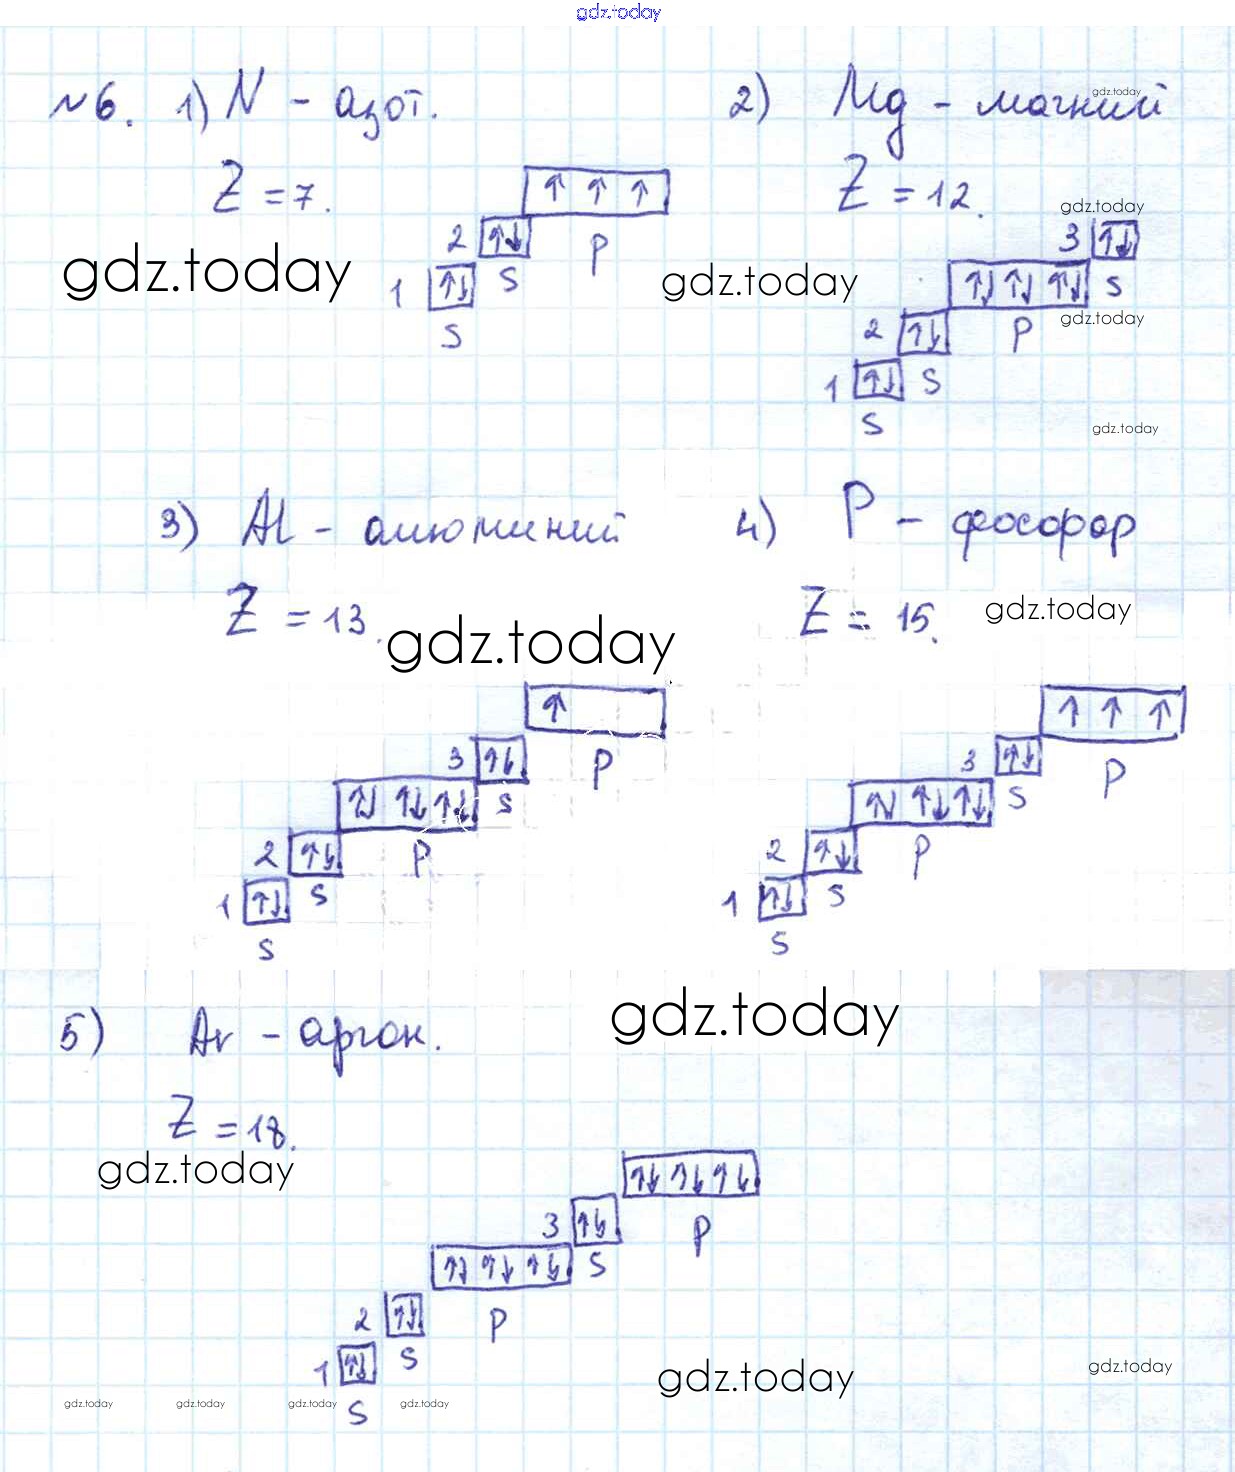 gdz.today
№6. 1) N - азот. 2) Mg - магний
gdz.today
Z = 7. Z = 12.
gdz.today
↑ ↑ ↑
2 ↑↓ p
gdz.today
1 ↑↓ s
s
3 ↑↓
gdz.today
↑↓ ↑↓ ↑↓ s
gdz.today
2 ↑↓ p
1 ↑↓ s
s
gdz.today
3) Al - алюминий 4) P - фосфор
Z = 13. Z = 15.
gdz.today
gdz.today
↑ ↑ ↑ ↑
3 ↑↓ p 3 ↑↓ p
↑↓ ↑↓ ↑↓ s ↑↓ ↑↓ ↑↓ s
2 ↑↓ p 2 ↑↓ p
1 ↑↓ s 1 ↑↓ s
s s
5) Ar - аргон.
gdz.today
Z = 18.
gdz.today
↑↓ ↑↓ ↑↓
3 ↑↓ p
↑↓ ↑↓ ↑↓ s
2 ↑↓ p
1 ↑↓ s
s
gdz.today gdz.today
gdz.today gdz.today gdz.today gdz.today